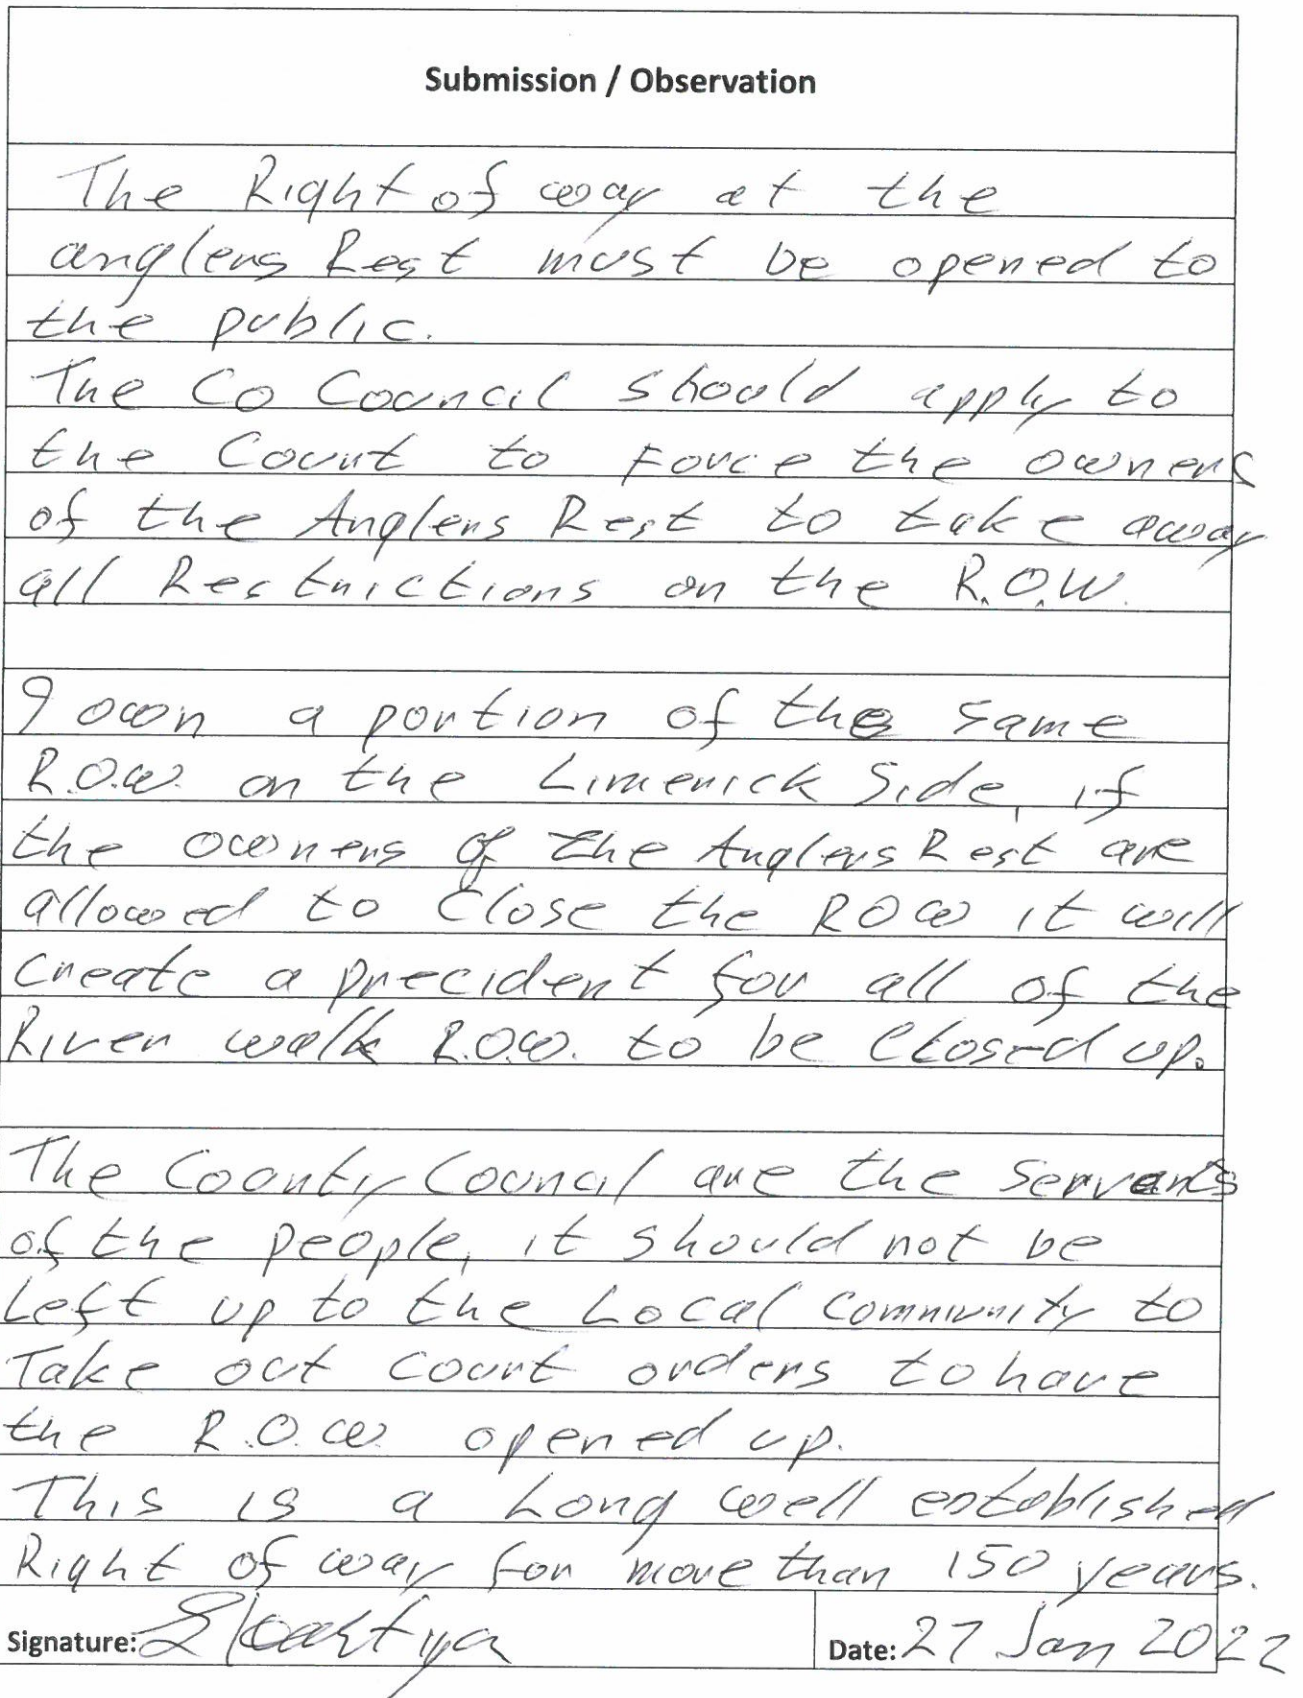 Submission / Observation
The Right of way at the
anglers Rest must be opened to
the public.
The Co Council should apply to
the Court to Force the owners
of the Anglers Rest to take away
all Restrictions on the R.O.W.
I own a portion of the same
R.O.W. on the Limerick Side, if
the owners of the Anglers Rest are
allowed to Close the ROW it will
Create a precident for all of the
River walk R.O.W. to be Closed up.
The County Council are the Servants
of the people, it should not be
Left up to the Local Community to
Take out Court orders to have
the R.O.W. opened up.
This is a Long well established
Right of way for more than 150 years.
Signature:
Date: 27 Jan 2022